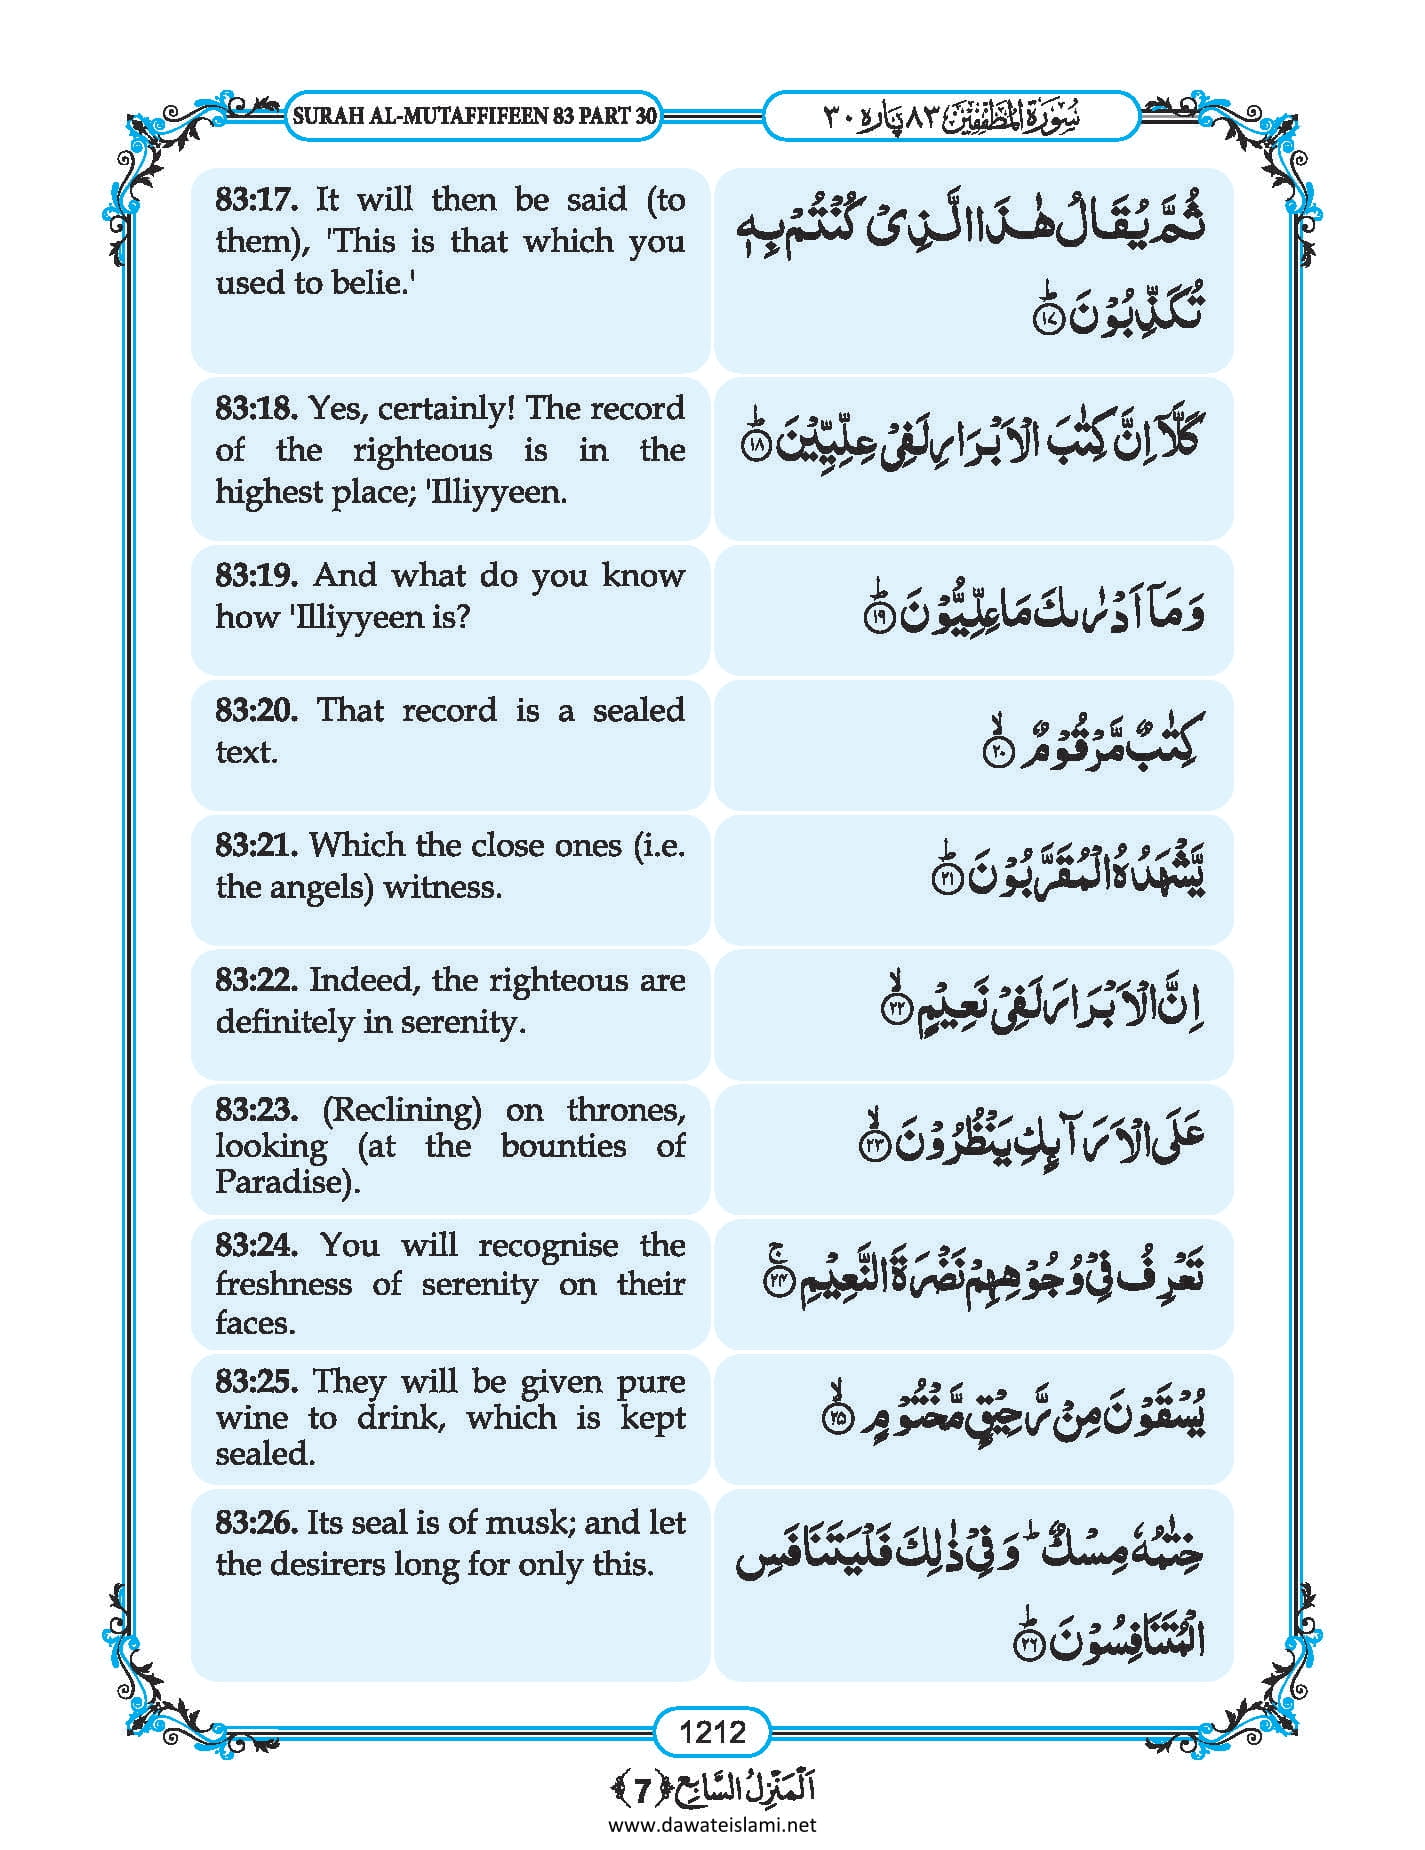 SURAH AL-MUTAFFIFEEN 83 PART 30
سُوْرَةُ الْمُطَفِّفِيْنَ ٨٣ پَارَہ ٣٠
83:17. It will then be said (to
them), 'This is that which you
used to belie.'
ثُمَّ یُقَالُ هٰذَا الَّذِیْ كُنْتُمْ بِهٖ
تُكَذِّبُوْنَؕ ۝۱۷
83:18. Yes, certainly! The record
of the righteous is in the
highest place; 'Illiyyeen.
كَلَّاۤ اِنَّ كِتٰبَ الْاَبْرَارِ لَفِیْ عِلِّیِّیْنَؕ ۝۱۸
83:19. And what do you know
how 'Illiyyeen is?
وَ مَاۤ اَدْرٰىكَ مَا عِلِّیُّوْنَؕ ۝۱۹
83:20. That record is a sealed
text.
كِتٰبٌ مَّرْقُوْمٌۙ ۝۲۰
83:21. Which the close ones (i.e.
the angels) witness.
یَّشْهَدُهُ الْمُقَرَّبُوْنَؕ ۝۲۱
83:22. Indeed, the righteous are
definitely in serenity.
اِنَّ الْاَبْرَارَ لَفِیْ نَعِیْمٍۙ ۝۲۲
83:23. (Reclining) on thrones,
looking (at the bounties of
Paradise).
عَلَى الْاَرَآىٕكِ یَنْظُرُوْنَۙ ۝۲۳
83:24. You will recognise the
freshness of serenity on their
faces.
تَعْرِفُ فِیْ وُجُوْهِهِمْ نَضْرَةَ النَّعِیْمِۚ ۝۲۴
83:25. They will be given pure
wine to drink, which is kept
sealed.
یُسْقَوْنَ مِنْ رَّحِیْقٍ مَّخْتُوْمٍۙ ۝۲۵
83:26. Its seal is of musk; and let
the desirers long for only this.
خِتٰمُهٗ مِسْكٌؕ وَ فِیْ ذٰلِكَ فَلْیَتَنَافَسِ
الْمُتَنَافِسُوْنَؕ ۝۲۶
1212
اَلْمَنْزِلُ السَّابِع ﴿7﴾
www.dawateislami.net